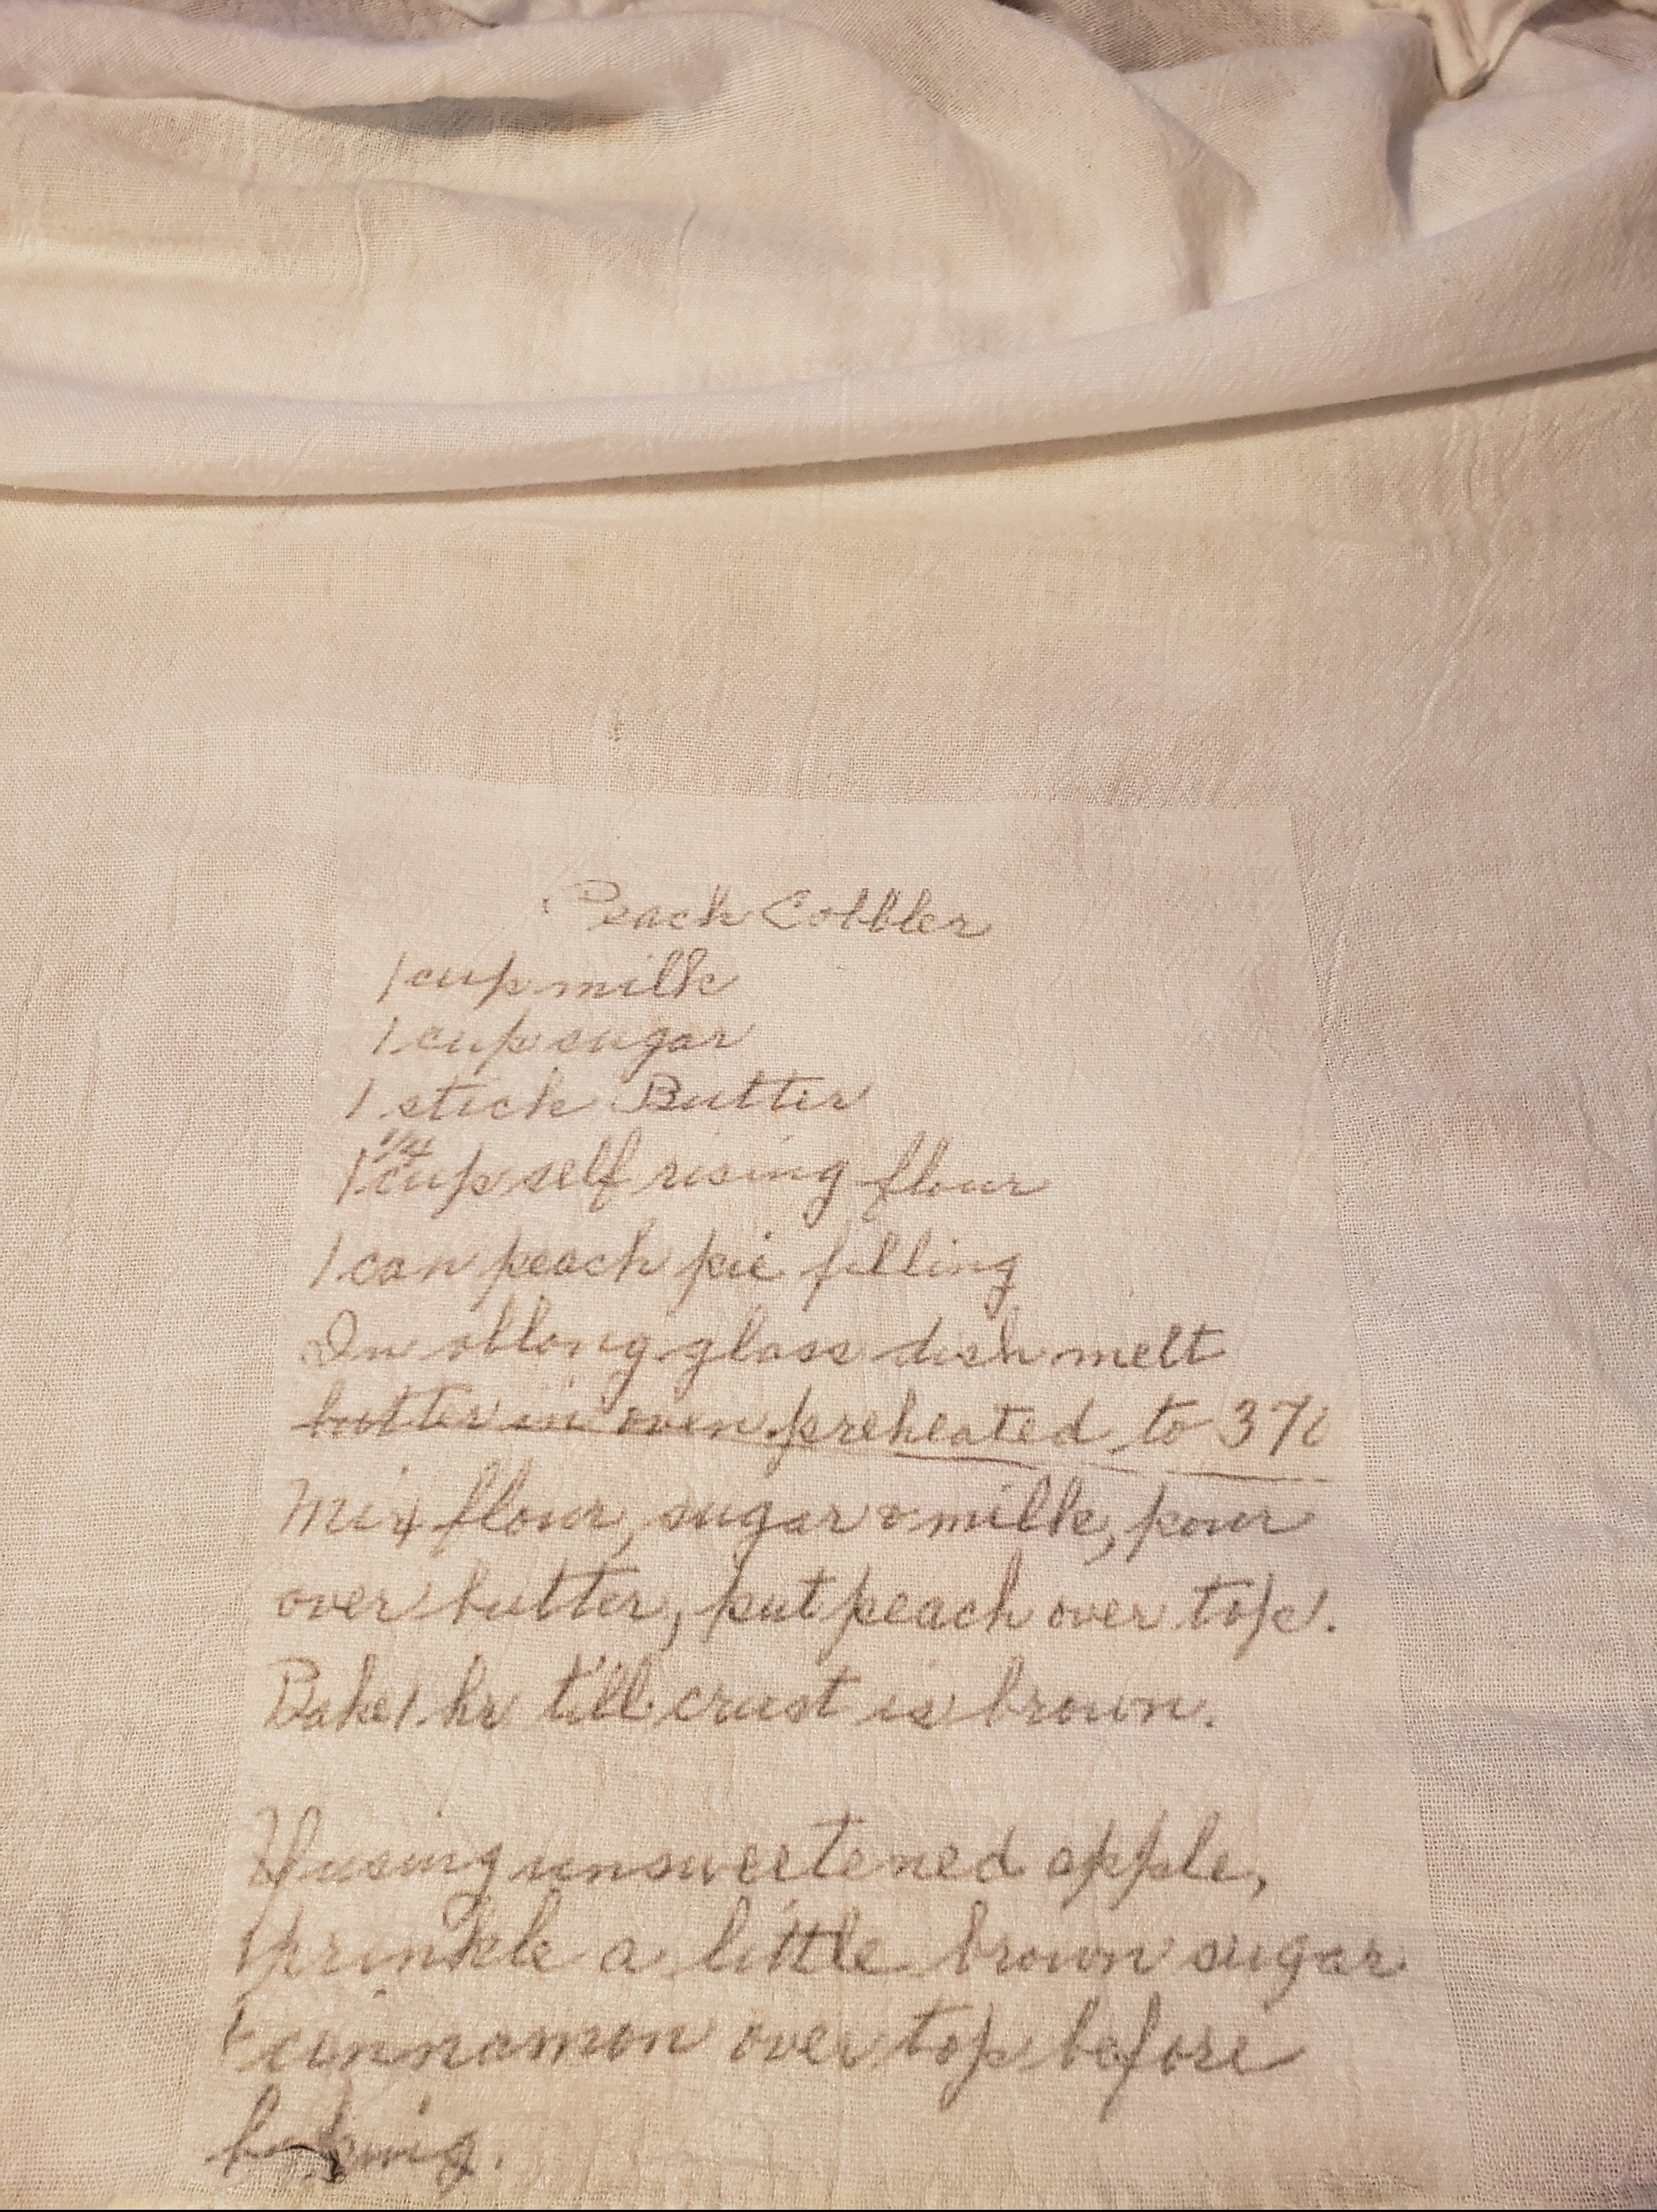 Peach Cobbler
1 cup milk
1 cup sugar
1 stick Butter
1 1/4 cup self rising flour
1 can peach pie filling
In oblong glass dish melt
butter in oven preheated to
Mix flour, sugar & milk, pour
over butter, put peach over top.
Bake 1 hr till crust is brown.
If using unsweetened apple,
sprinkle a little brown sugar
& cinnamon over top before
baking.